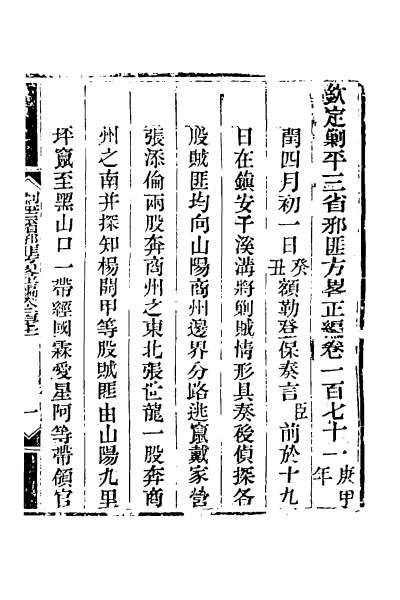 欽定剿平三省邪匪方畧正編卷一百七十一庚甲年
閏四月初一日癸丑額勒登保奏言臣前於十九
日在鎮安千溪溝將剿賊情形具奏後偵探各
股賊匪均向山陽商州邊界分路逃竄戴家營
張添倫兩股奔商州之東北張世龍一股奔商
州之南并探知楊開甲等股賊匪由山陽九里
坪竄至黑山口一帶經國霖愛星阿等帶領官